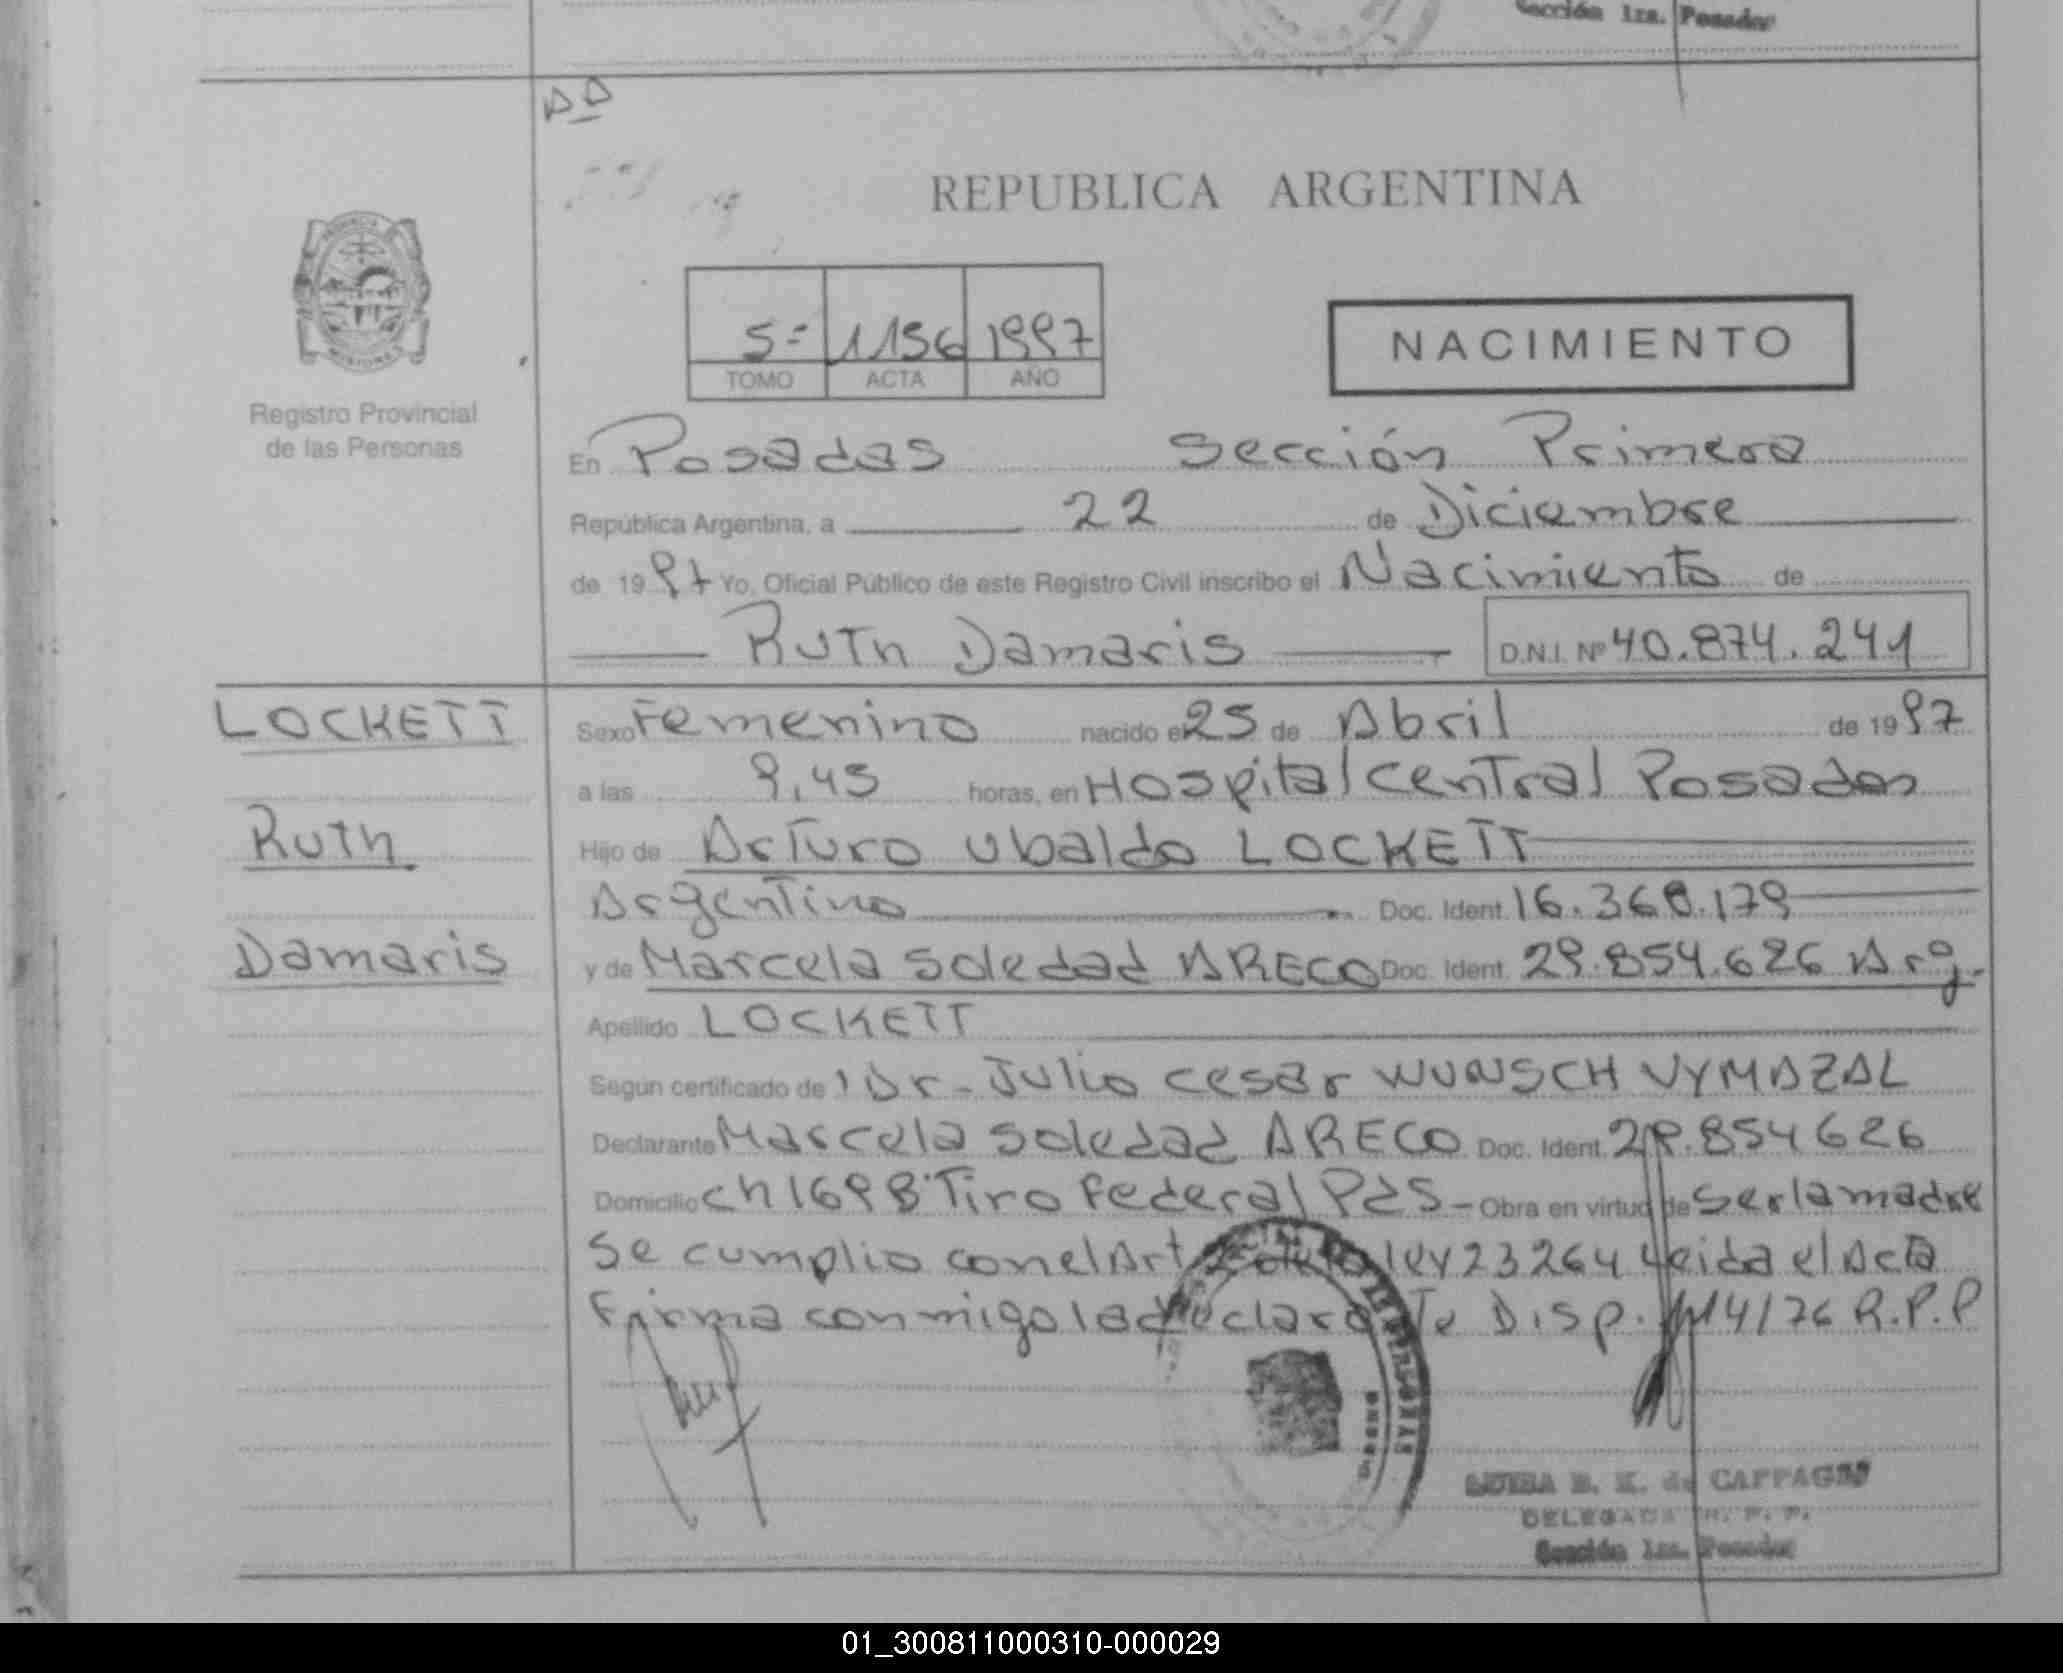 Sección 1ra. Posadas
REPUBLICA ARGENTINA
5= 1156 1997
TOMO ACTA AÑO
NACIMIENTO
PROVINCIA
MISIONES
Registro Provincial
de las Personas
En Posadas Sección Primera
República Argentina, a 22 de Diciembre
de 1997 Yo, Oficial Público de este Registro Civil inscribo el Nacimiento de
Ruth Damaris D.N.I. Nº 40.874.241
LOCKETT
Ruth
Damaris
Sexo Femenino nacido el 25 de Abril de 1997
a las 9,45 horas, en Hospital Central Posadas
Hijo de Arturo Ubaldo LOCKETT
Argentino Doc. Ident. 16.368.179
y de Marcela Soledad ARECO Doc. Ident. 29.854.626 Arg.
Apellido LOCKETT
Según certificado de Dr. Julio Cesar WUNSCH VYMAZAL
Declarante Marcela Soledad ARECO Doc. Ident. 29.854626
Domicilio Ch 169 B° Tiro Federal Pds - Obra en virtud de ser la madre
Se cumplio con el Art ley 23264 Leida el Acta
Firma conmigo la declarante Disp. 114/76 R.P.P
DE LAS PERSONAS
LUISA B. K. de CAPPAGLI
DELEGADA R. P. P.
Sección 1ra. Posadas
01_300811000310-000029